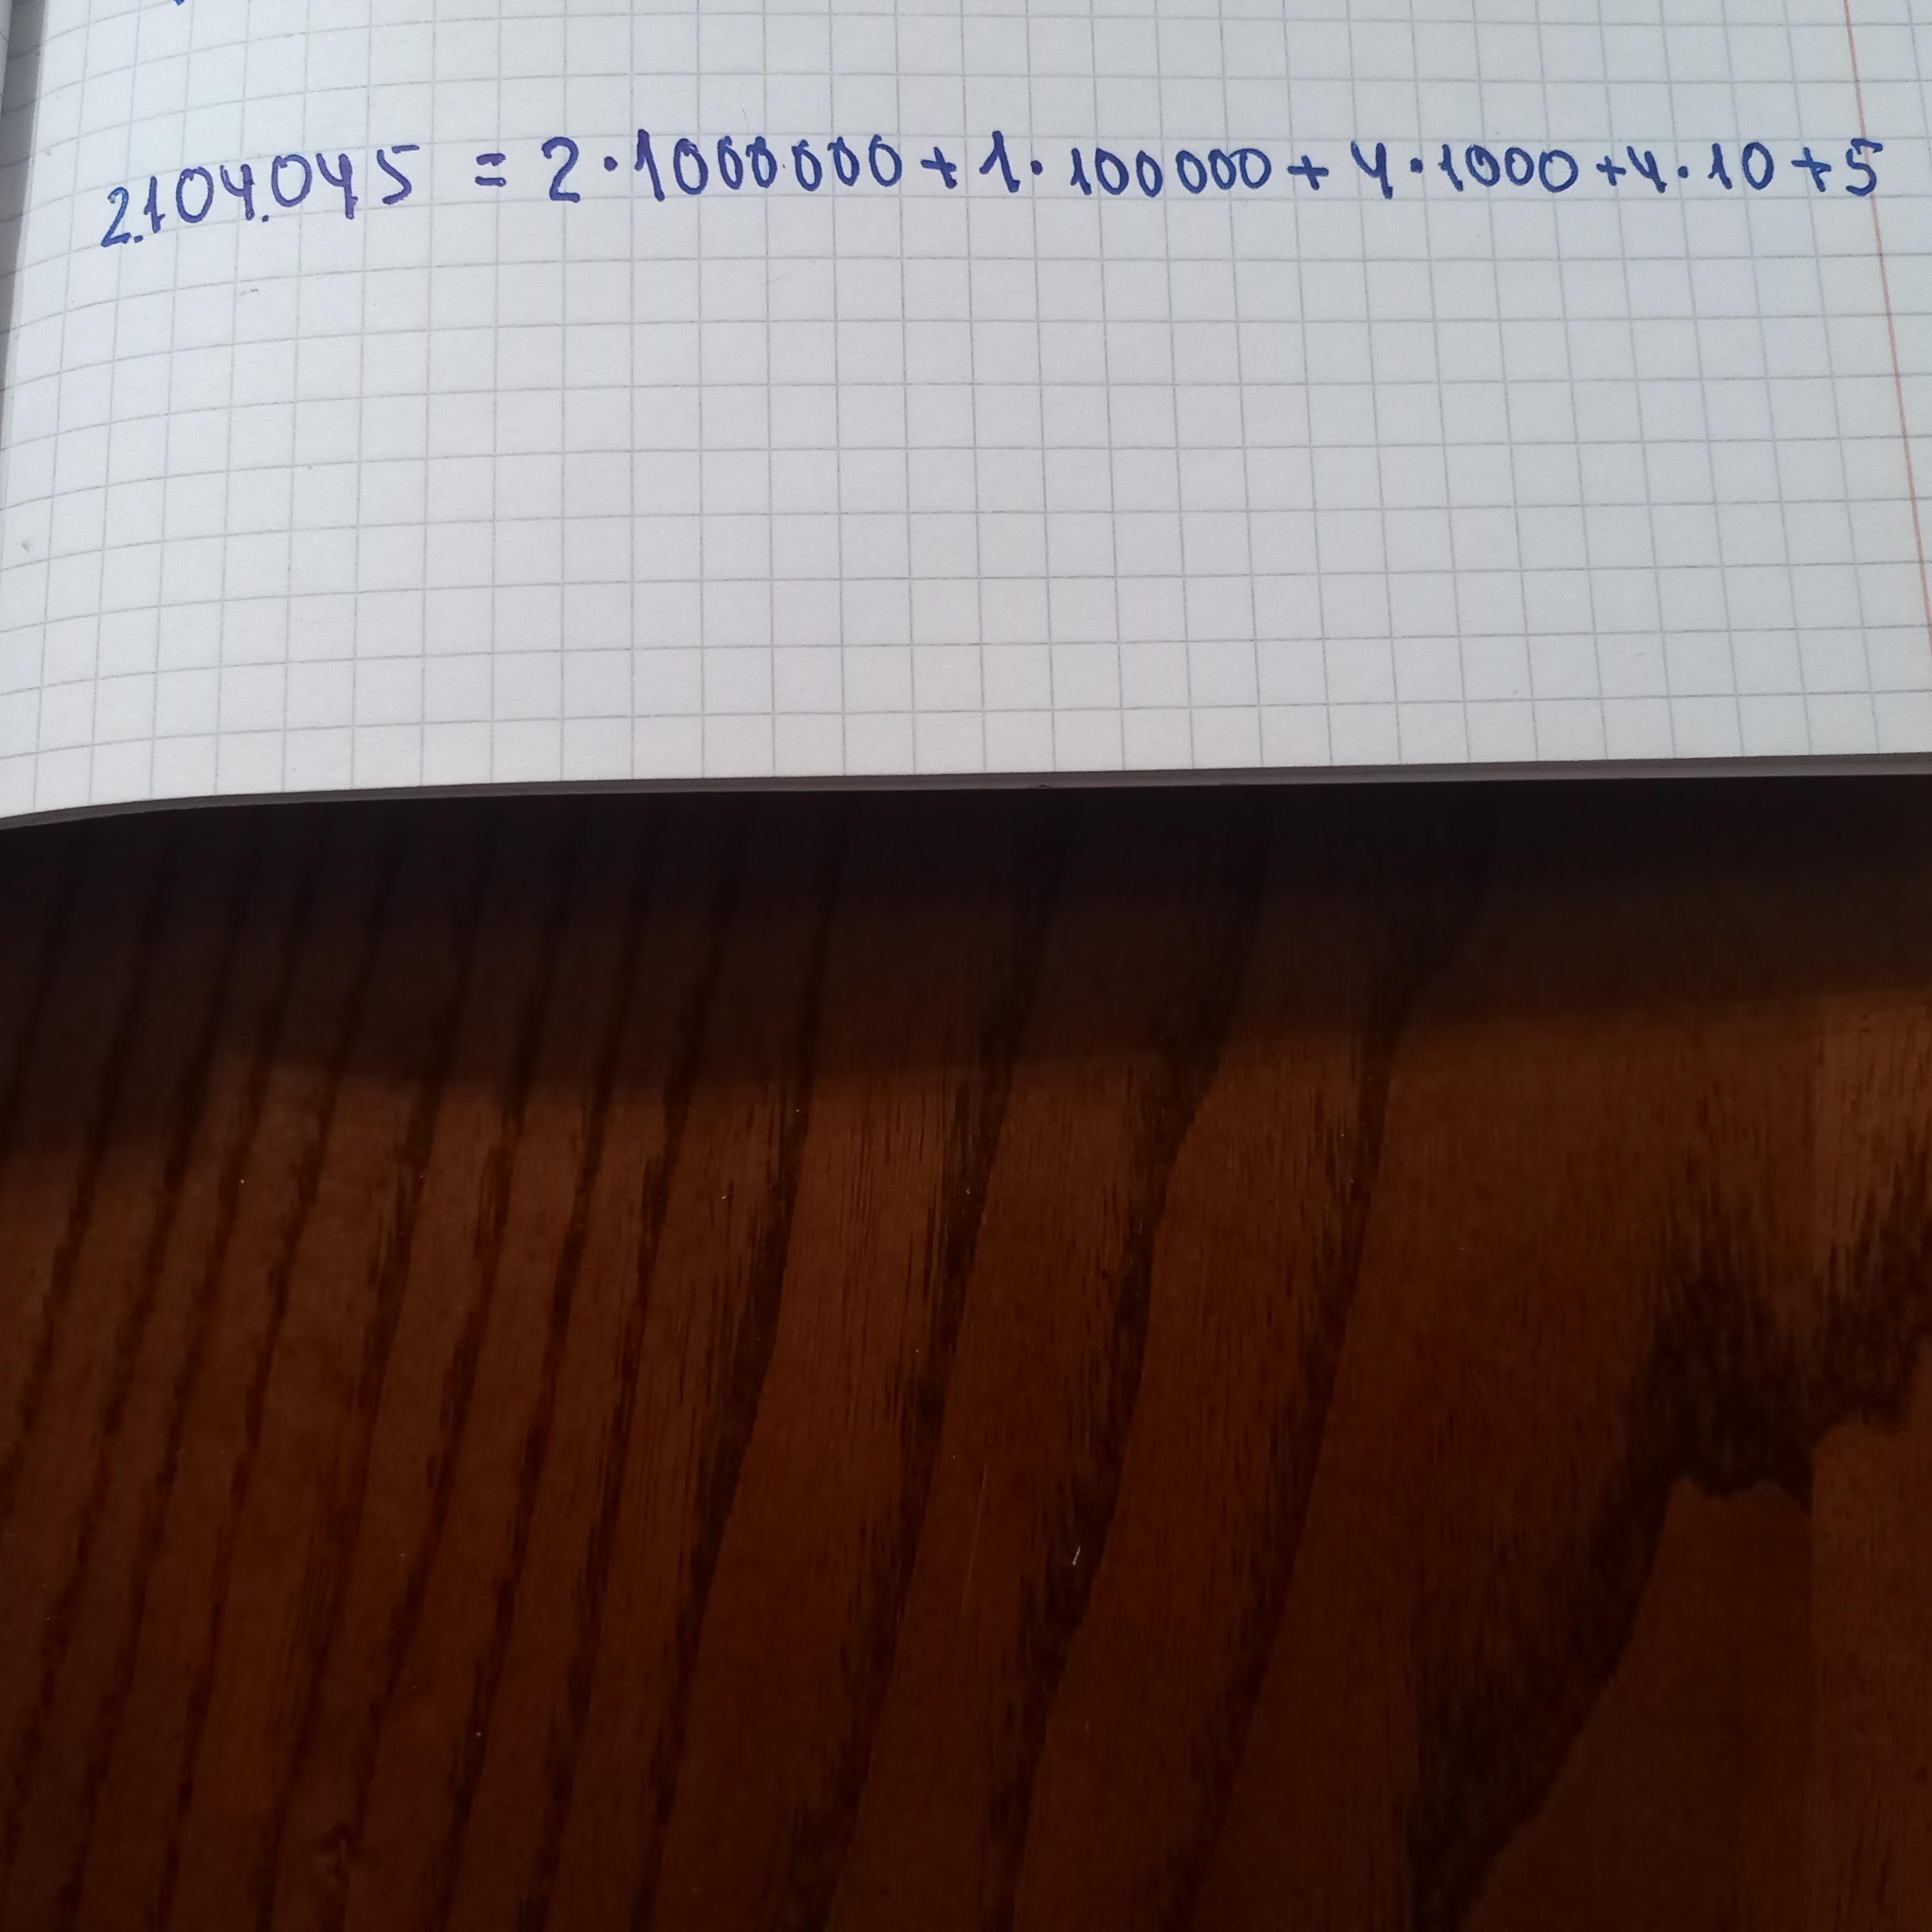 2.104.045 = 2·1000000+1·100000+4·1000+4·10+5